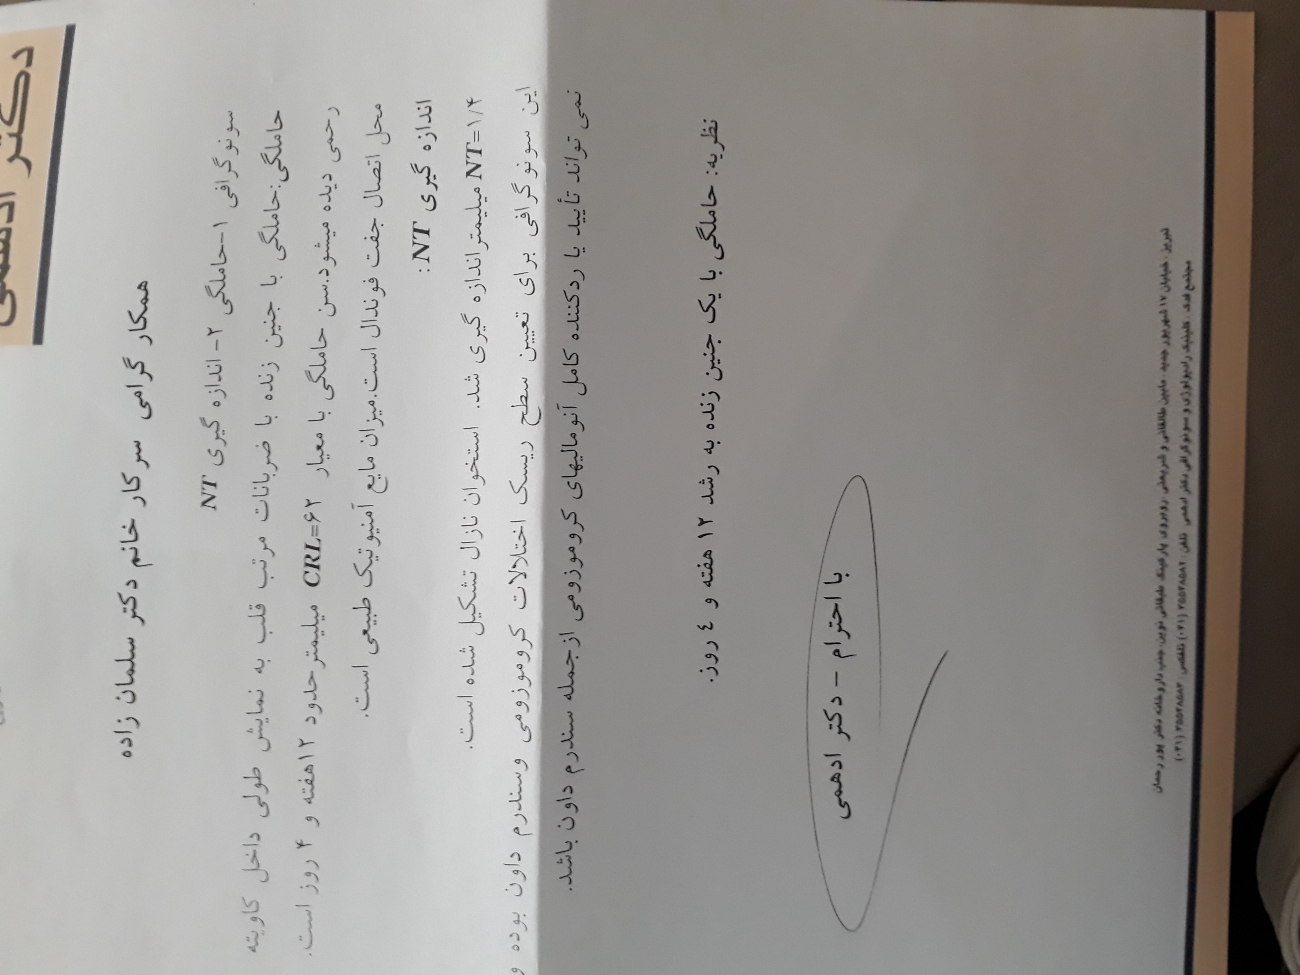 دکتر ادهمی
همکار گرامی سرکار خانم دکتر سلمان زاده
سونوگرافی ۱-حاملگی ۲- اندازه گیری NT
حاملگی:حاملگی با جنین زنده با ضربانات مرتب قلب به نمایش طولی داخل کاویته
رحمی دیده میشود.سن حاملگی با معیار CRL=۶۲ میلیمتر حدود ۱۲هفته و ۴ روز است.
محل اتصال جفت فوندال است.میزان مایع آمنیوتیک طبیعی است.
اندازه گیری NT:
NT=۱/۴ میلیمتر اندازه گیری شد. استخوان نازال تشکیل شده است.
این سونوگرافی برای تعیین سطح ریسک اختلالات کروموزومی وسندرم داون بوده و
نمی تواند تأیید یا ردکننده کامل آنومالیهای کروموزومی ازجمله سندرم داون باشد.
نظریه: حاملگی با یک جنین زنده به رشد ۱۲ هفته و ٤ روز.
با احترام - دکتر ادهمی
تبریز . خیابان ۱۷ شهریور جدید . مابین طالقانی و شریعتی . روبروی پارکینگ طبقاتی نوین، جنب داروخانه دکتر پوررحمان
مجتمع فدک . کلینیک رادیولوژی و سونوگرافی دکتر ادهمی